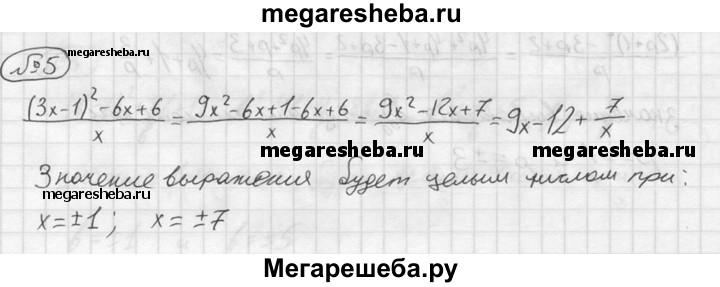 megaresheba.ru
№5
megaresheba.ru
(3x-1)²-6x+6/x = 9x²-6x+1-6x+6/x = 9x²-12x+7/x = 9x-12+7/x
megaresheba.ru megaresheba.ru megaresheba.ru
Значение выражения будет целым числом при:
megaresheba.ru megaresheba.ru
x=±1; x=±7
Мегарешеба.ру